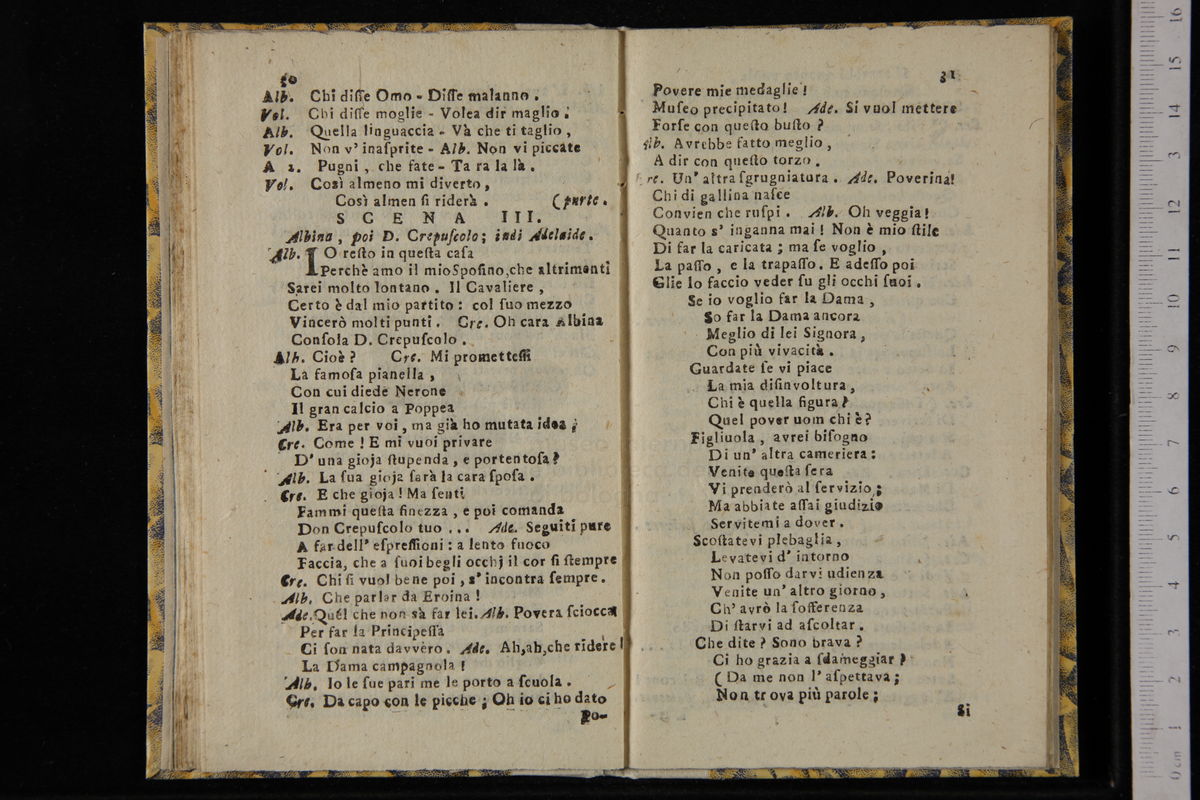 30
Alb. Chi diſſe Omo - Diſſe malanno.
Vol. Chi diſſe moglie - Volea dir maglio;
Alb. Quella linguaccia - Và che ti taglio,
Vol. Non v' inaſprite - Alb. Non vi piccate
A 2. Pugni, che fate - Ta ra la là.
Vol. Così almeno mi diverto,
Così almen ſi riderà. (parte.
SCENA III.
Albina, poi D. Crepuſcolo; indi Adelaide.
Alb. IO reſto in queſta caſa
Perchè amo il mio Spoſino, che altrimenti
Sarei molto lontano. Il Cavaliere,
Certo è dal mio partito: col ſuo mezzo
Vincerò molti punti. Cre. Oh cara Albina
Conſola D. Crepuſcolo.
Alb. Cioè? Cre. Mi promettesſi
La famoſa pianella,
Con cui diede Nerone
Il gran calcio a Poppea
Alb. Era per voi, ma già ho mutata idea;
Cre. Come! E mi vuoi privare
D' una gioja ſtupenda, e portentoſa?
Alb. La ſua gioja ſarà la cara ſpoſa.
Cre. E che gioja! Ma ſenti
Fammi queſta finezza, e poi comanda
Don Crepuſcolo tuo ... Ade. Seguiti pure
A far dell' eſpreſſioni: a lento fuoco
Faccia, che a ſuoi begli occhj il cor ſi ſtempre
Cre. Chi ſi vuol bene poi, s' incontra ſempre.
Alb. Che parlar da Eroina!
Ade. Quel che non sà far lei. Alb. Povera ſciocca
Per far la Principeſſa
Ci ſon nata davvero. Ade. Ah, ah, che ridere!
La Dama campagnola!
Alb. Io le ſue pari me le porto a ſcuola.
Cre. Da capo con le picche; Oh io ci ho dato
Po-
31
Povere mie medaglie!
Muſeo precipitato! Ade. Si vuol mettere
Forſe con queſto buſto?
Alb. Avrebbe fatto meglio,
A dir con queſto torzo.
Cre. Un' altra ſgrugniatura. Ade. Poverina!
Chi di gallina naſce
Convien che ruſpi. Alb. Oh veggia!
Quanto s' inganna mai! Non è mio ſtile
Di far la caricata; ma ſe voglio,
La paſſo, e la trapaſſo. E adeſſo poi
Glie lo faccio veder ſu gli occhi ſuoi.
Se io voglio far la Dama,
So far la Dama ancora
Meglio di lei Signora,
Con più vivacità.
Guardate ſe vi piace
La mia diſinvoltura,
Chi è quella figura?
Quel pover uom chi è?
Figliuola, avrei biſogno
Di un' altra cameriera:
Venite queſta ſera
Vi prenderò al ſervizio;
Ma abbiate aſſai giudizio
Servitemi a dover.
Scoſtatevi plebaglia,
Levatevi d' intorno
Non poſſo darvi udienza
Venite un' altro giorno,
Ch' avrò la ſofferenza
Di ſtarvi ad aſcoltar.
Che dite? Sono brava?
Ci ho grazia a ſdameggiar?
(Da me non l' aſpettava;
Non trova più parole;
Si